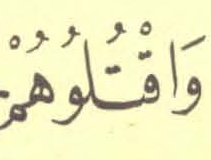 وَاقْتُلُوهُمْ